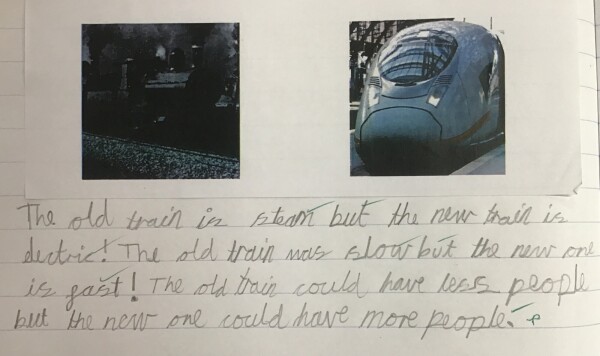 The old train is steam but the new train is
electric! The old train was slow but the new one
is fast! The old train could have less people
but the new one could have more people.